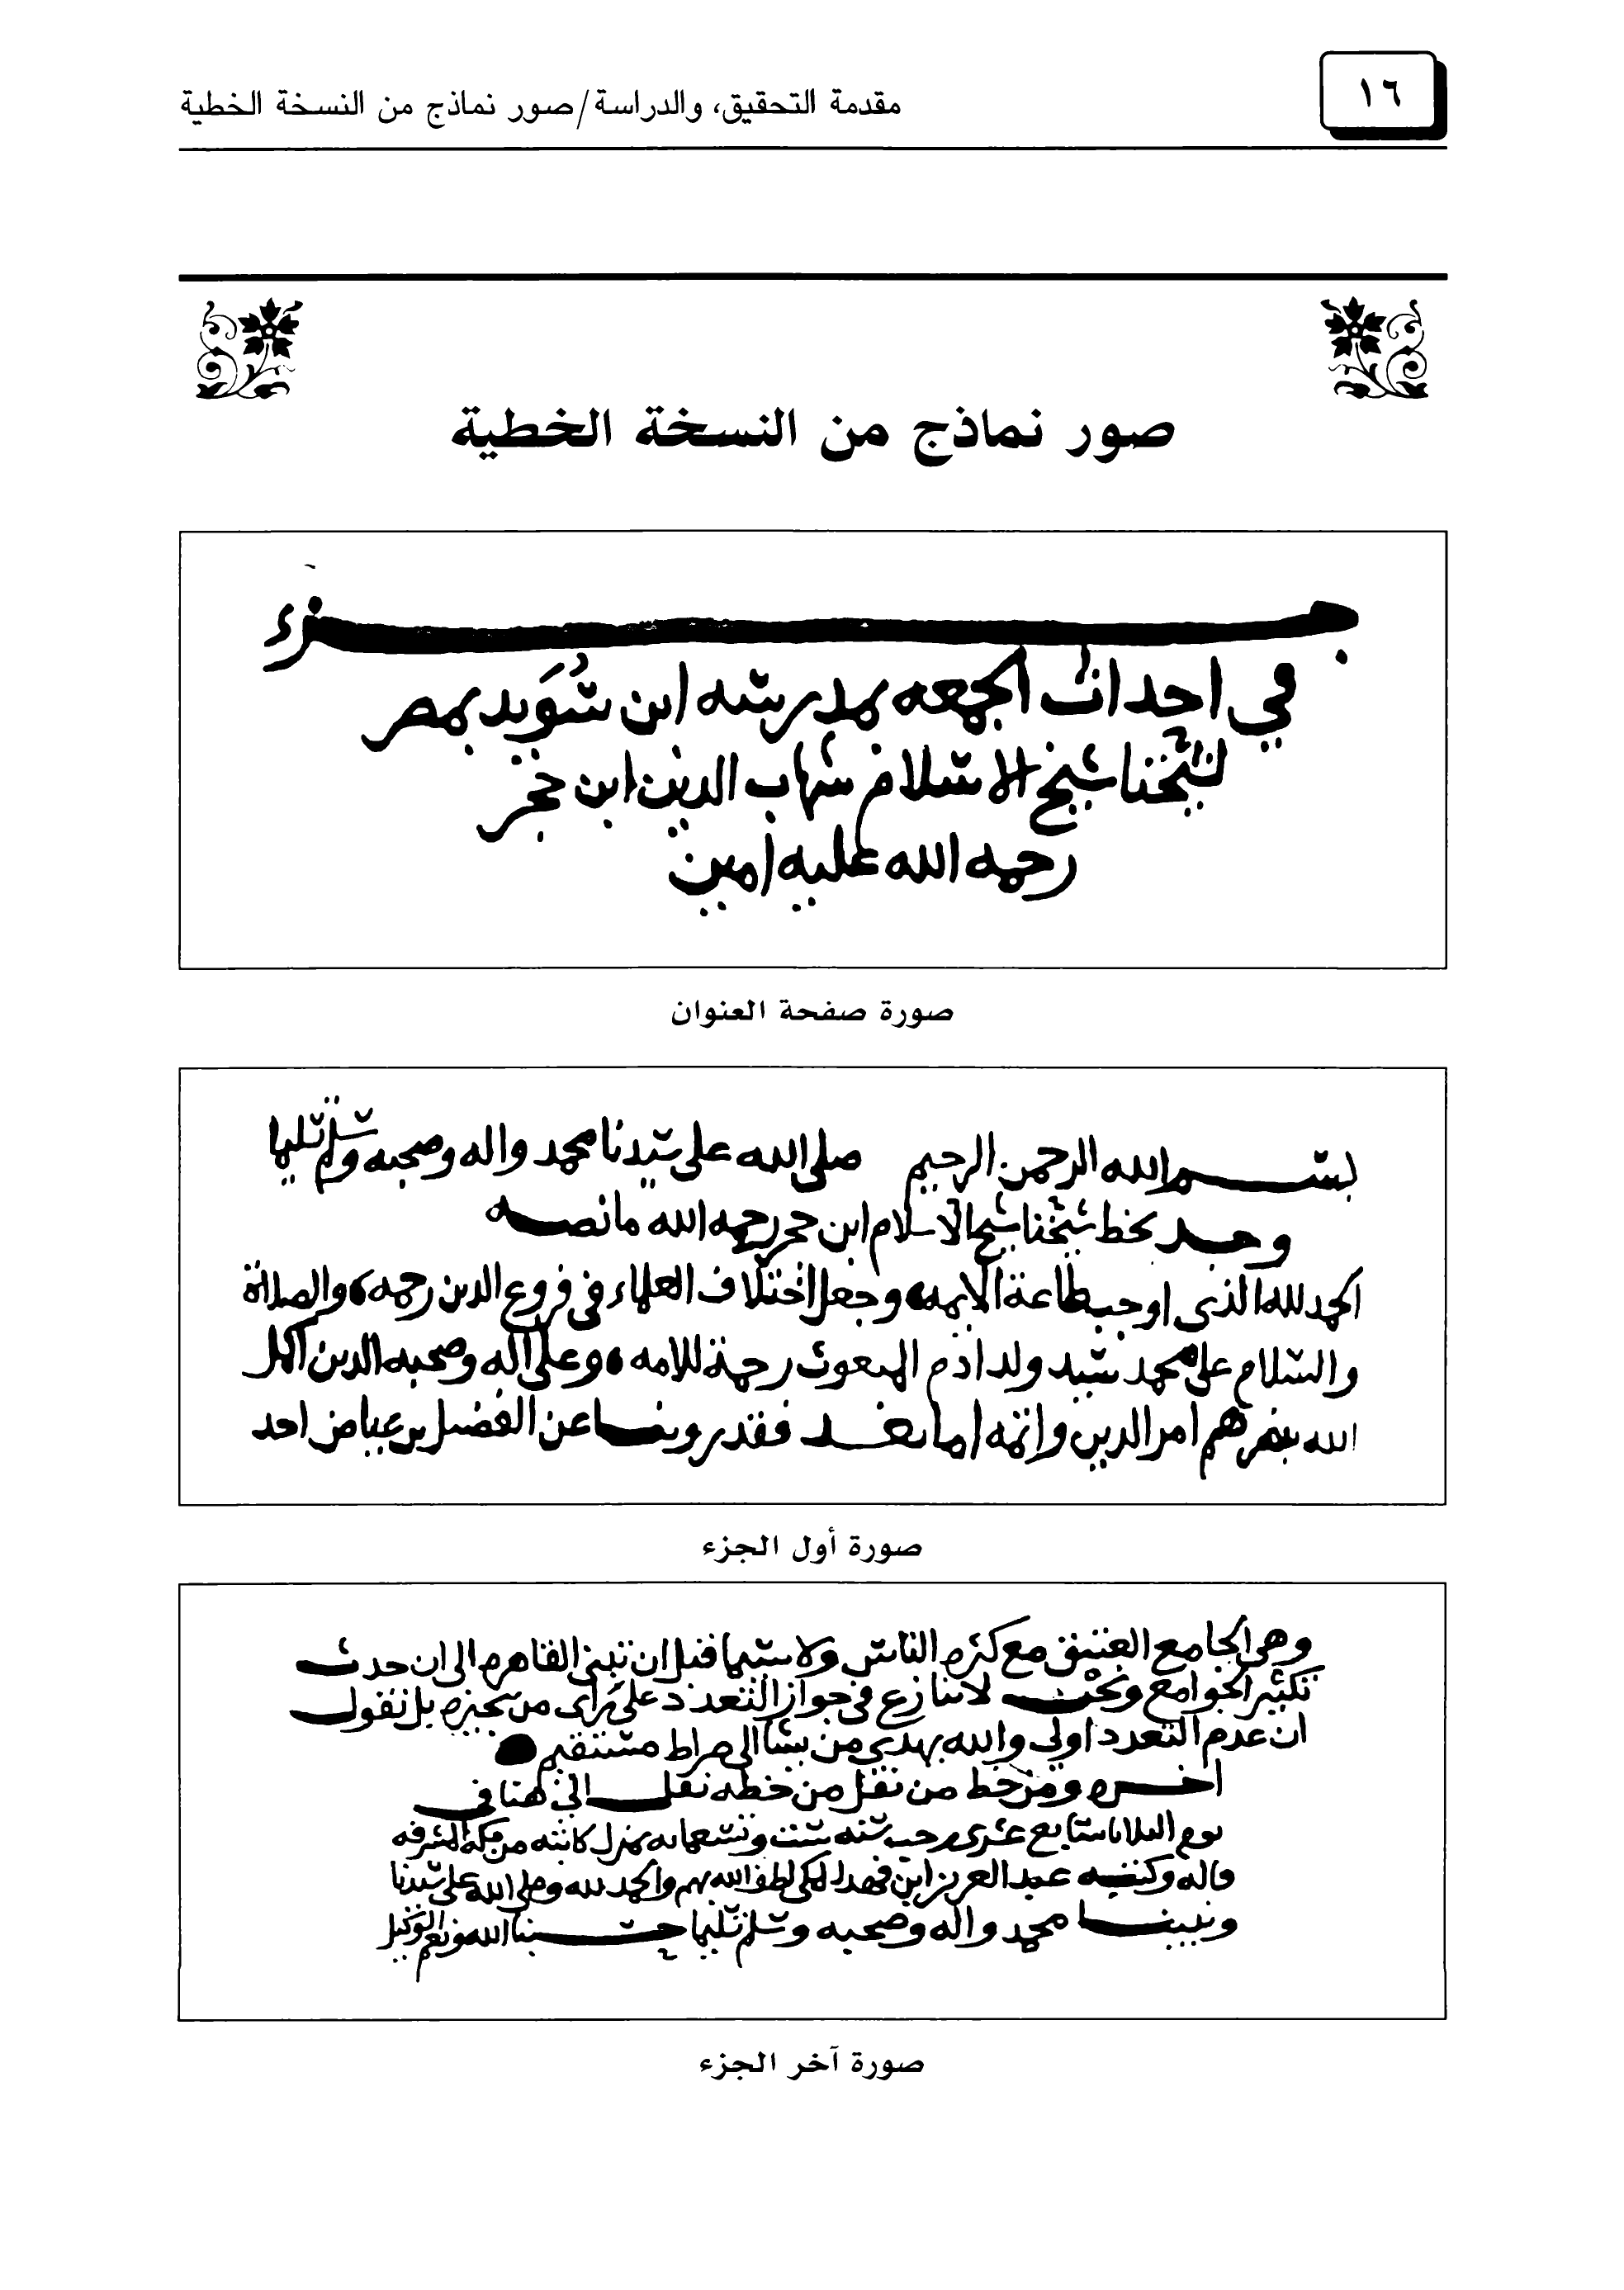 ١٦
مقدمة التحقيق، والدراسة/صور نماذج من النسخة الخطية
صور نماذج من النسخة الخطية
جزء
في احداث الجمعه بمدرسه ابن سُوَيد بمصر
لشيخنا شيخ الاسلام شهاب الدين ابن حجر
رحمه الله عليه امين
صورة صفحة العنوان
بسم الله الرحمن الرحيم صلى الله على سيدنا محمد واله وصحبه وسلم تسليما
وجد بخط شيخنا شيخ الاسلام ابن حجر رحمه الله ما نصه
الحمد لله الذي اوجب طاعة الايمه وجعل اختلاف العلماء في فروع الدين رحمه والصلاة
والسلام على محمد سيد ولد ادم المبعوث رحمة للامه وعلى اله وصحبه الدين اكمل
الله بنصرهم امر الدين واتمه اما بعد فقد روينا عن الفضيل بن عياض احد
صورة أول الجزء
وهي الجامع العتيق مع كثره الناس ولا سيما قبل ان تبنى القاهره الى ان حدث
تكثير الجوامع ونحن لا ننازع في جواز التعدد على راى من يجيزه بل نقول
ان عدم التعدد اولى والله يهدي من يشا الى صراط مستقيم
اخره ومن خط من نقل من خطه نقل الى هنا في
يوم الثلاثا سابع عشرى رجب سنه ست وتسعمايه بمنزل كاتبه من مكه المشرفه
قاله وكتبه عبد العزيز ابن فهد المكى لطف الله بهم والحمد لله وصلى الله على سيدنا
ونبينا محمد واله وصحبه وسلم تسليما حسبنا الله ونعم الوكيل
صورة آخر الجزء